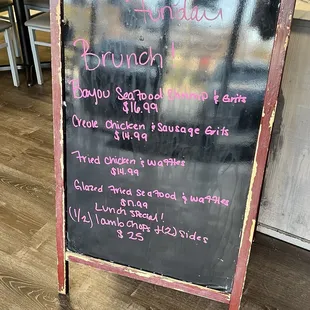 Sunday
Brunch!
Bayou Seafood Shrimp & Grits
$16.99
Creole Chicken & Sausage Grits
$14.99
Fried chicken & waffles
$14.99
Glazed Fried seafood & waffles
$17.99
Lunch special!
(1/2) lamb chops + (2) sides
$25